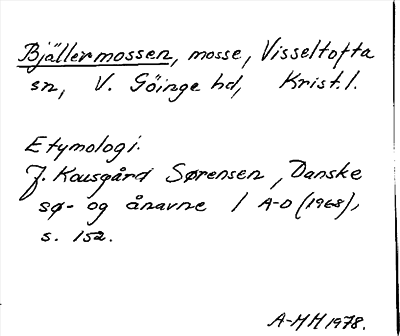 Bjällermossen, mosse, Visseltofta
sn, V. Göinge hd, Krist. l.
Etymologi.
J. Kousgård Sørensen, Danske
sø- og ånavne 1 A-D (1968),
s. 152.
A-MH 1978.